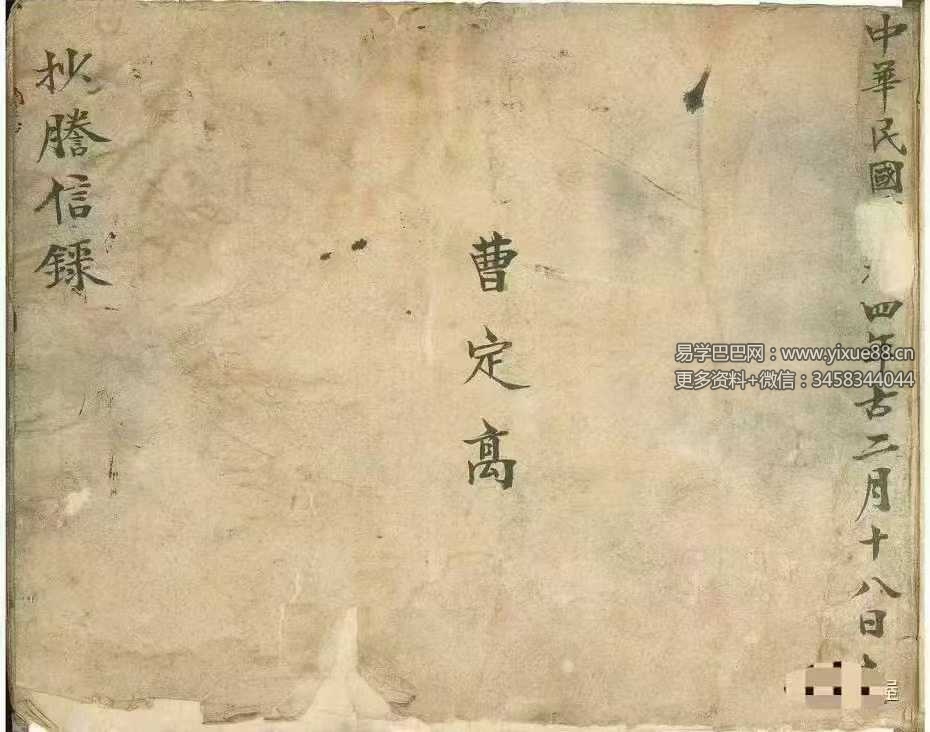 中華民國
四年古二月十八日
曹定髙
抄謄信録
易学巴巴网：www.yixue88.cn
更多资料+微信：3458344044